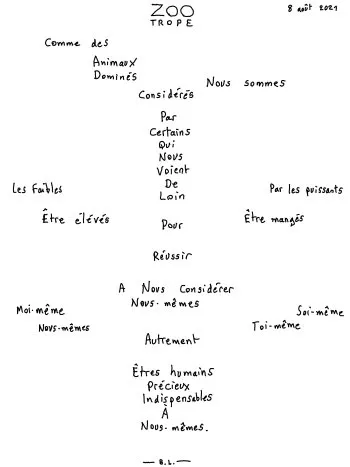 ZOO
TROPE
8 août 2021
Comme des
Animaux
Dominés
Nous sommes
Considérés
Par
Certains
Qui
Nous
Voient
De
Loin
Les Faibles
Par les puissants
Être élevés
Pour
Être mangés
Réussir
A Nous Considérer
Nous-mêmes
Moi-même
Soi-même
Nous-mêmes
Toi-même
Autrement
Êtres humains
Précieux
Indispensables
À
Nous-mêmes.
— B.L. —